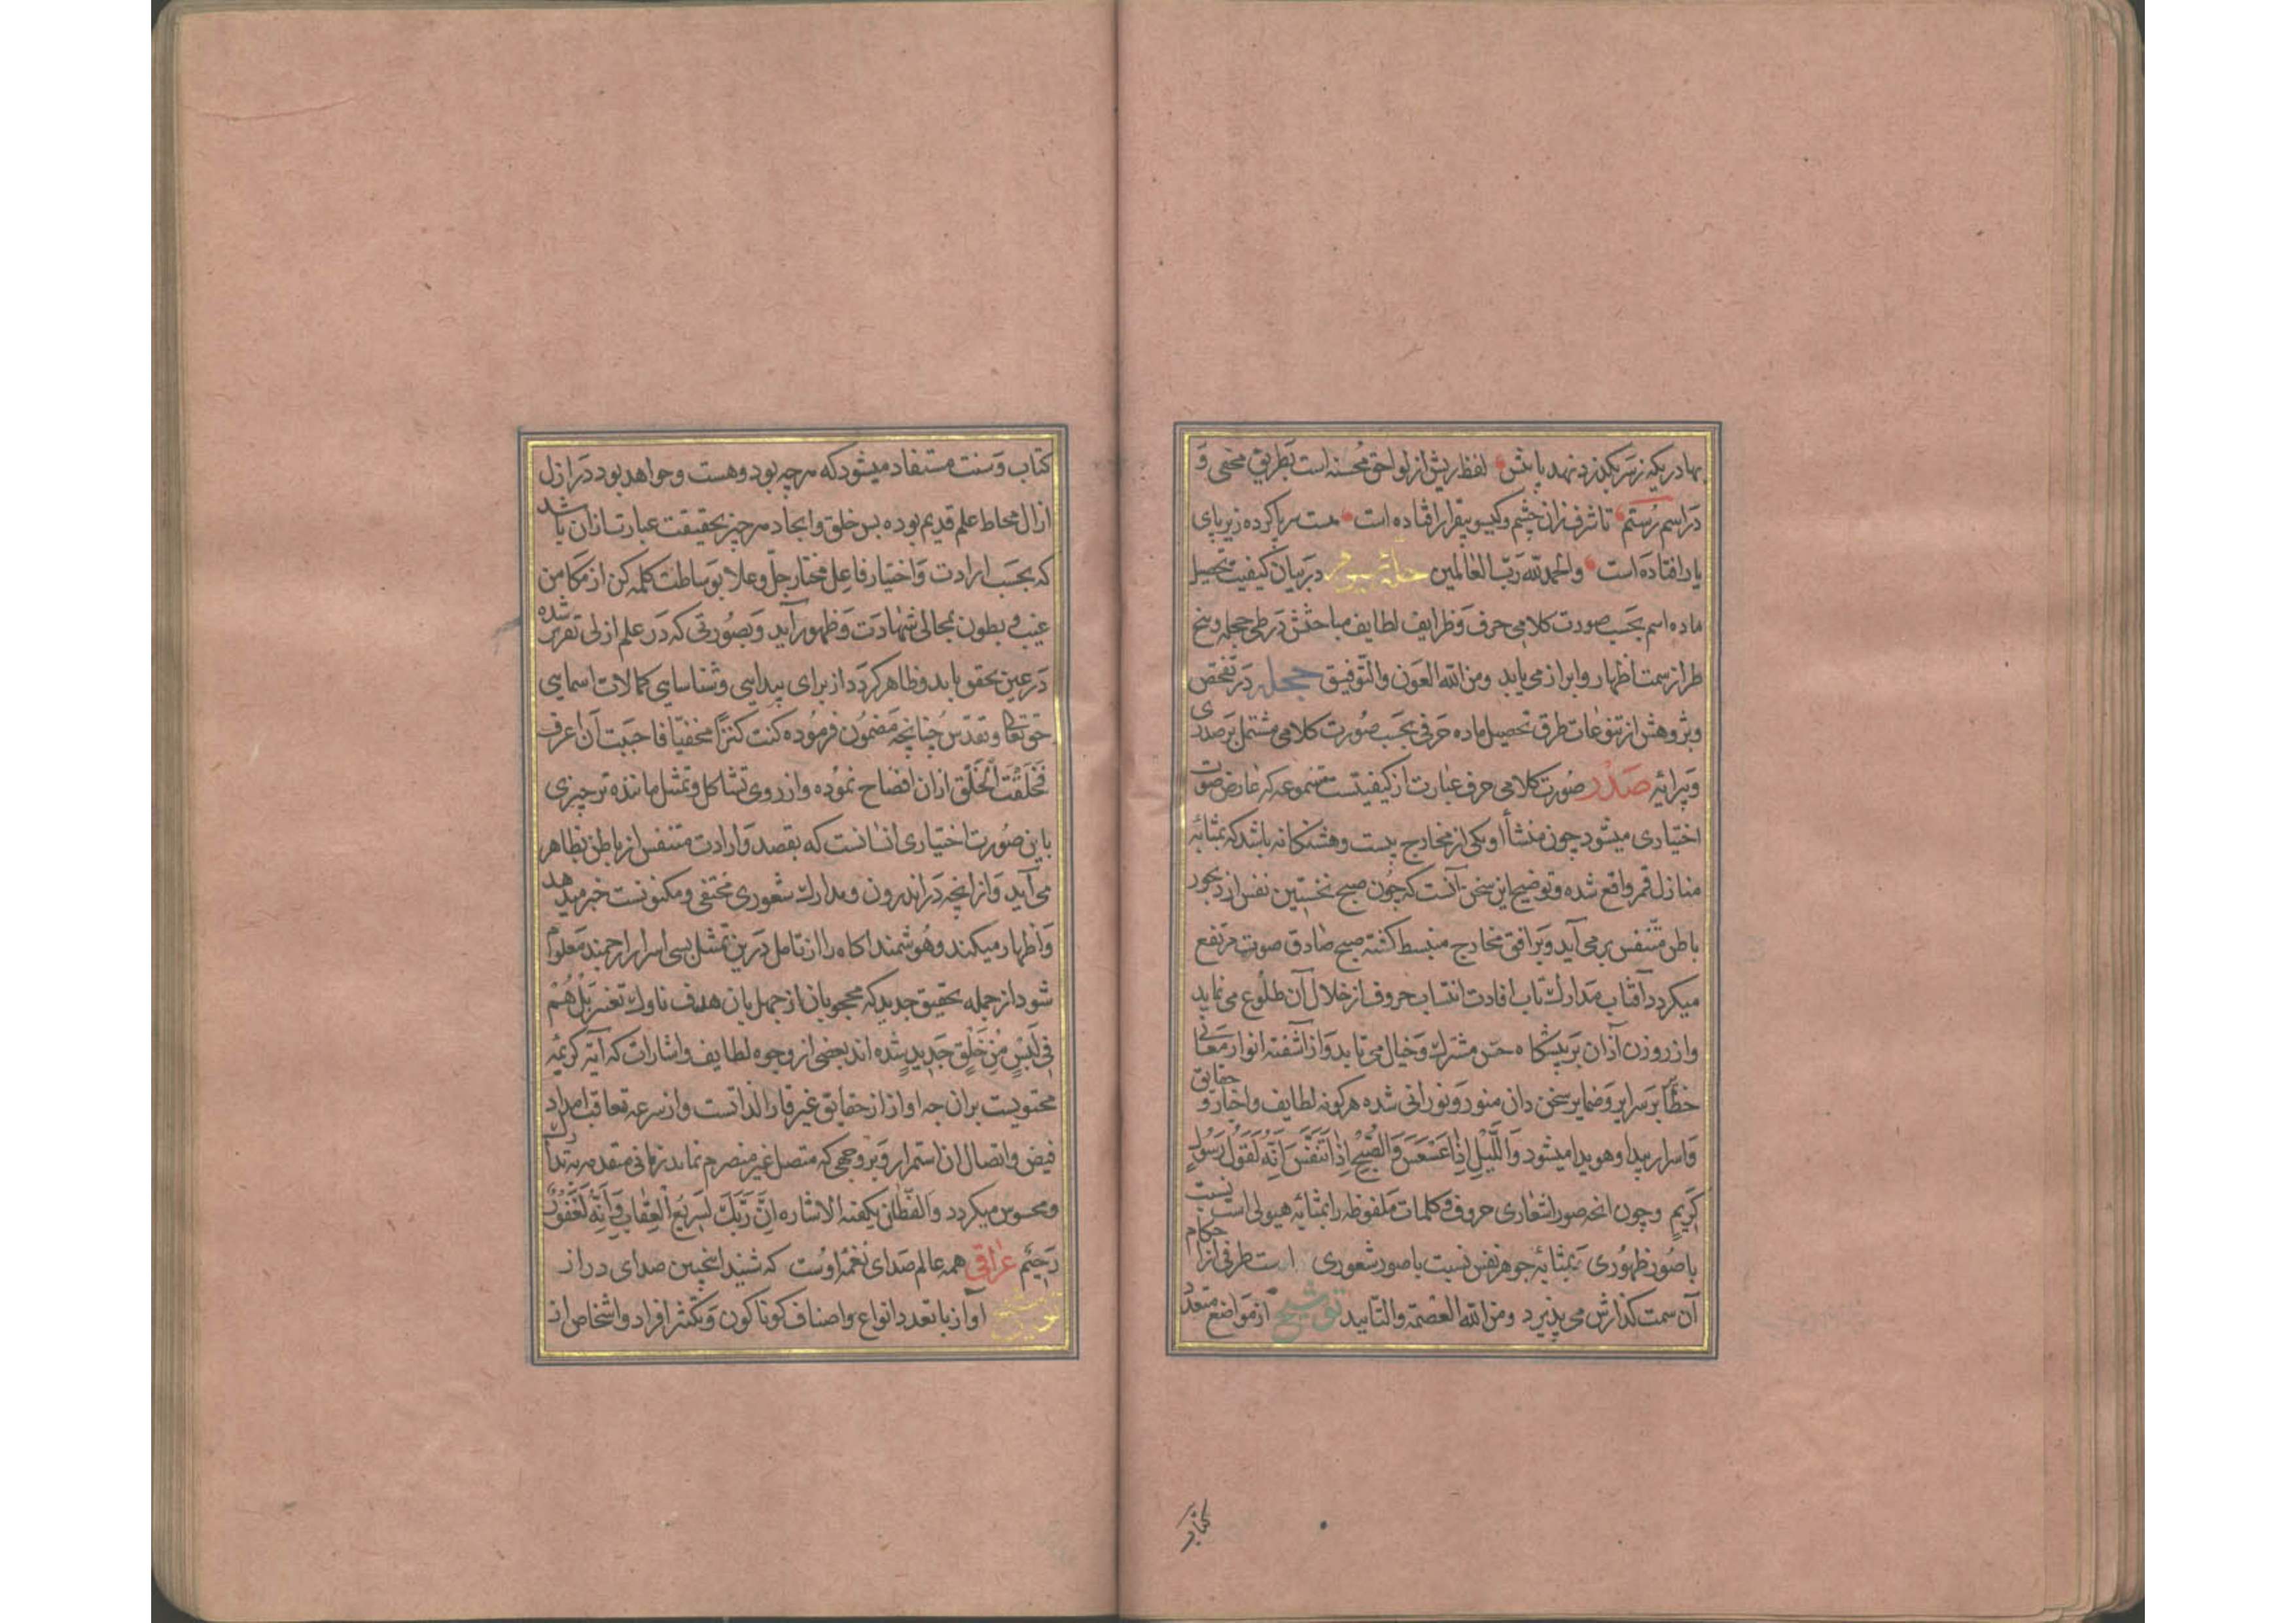 بهادریکه زسر بگذرد نهد پایش لفظ ریش از لواحق محسنه است بطریق مخفی و
در اسم رستم تا شرف زان چشم و گیسو بیقرار افتاده است هست سر با کرده زیر پای
یار افتاده است والحمد لله رب العالمین حله سوم در بیان کیفیت تحصیل
ماده اسم بحسب صورت کلامی حرف و ظرایف لطایف مباحثش در طی حجله و پنج
طراز سمت اظهار و ابراز می یابد ومن الله العون والتوفیق حجله در تفحص
وپژوهش از تنوعات طرق تحصیل ماده حرفی بحسب صورت کلامی مشتمل بر صدری
وپرایه صدر صورت کلامی حرف عبارت از کیفیتست مسموعه که عارض صوت
اختیاری میشود چون منشأ او یکی از مخارج بیست وهشتگانه باشد که بمثابه
منازل قمر واقع شده و توضیح این سخن آنست که چون صبح نخستین نفس از دیجور
باطن متنفس برمی آید و بر افق مخارج منبسط کشته صبح صادق صوت مرتفع
میکردد آفتاب مدارک تاب افادت انتساب حروف از خلال آن طلوع می نماید
واز روزن آذان بر پیشکاه حس مشترک وخیال می تابد واز آشفته انوار معانی
خطا بر سرایر وضمایر سخن دان منور و نورانی شده هرکونه لطایف واخبار و حقایق
واسرار پیدا وهویدا میشود واللیل اذا عسعس والصبح اذا تنفس انه لقول رسول
کریم وچون انحه صور اشعاری حروف و کلمات ملفوظه را بمثابه هیولی است نسبت
با صور ظهوری بمثابه جوهر نفس نسبت با صور شعوری است طرفی از احکام
آن سمت کذارش می پذیرد ومن الله العصمة والتایید توشیح از مواضع متعدد
کتاب وسنت مستفاد میشود که هر چه بود وهست وخواهد بود در ازل
ازال محاط علم قدیم بوده پس خلق وایجاد هر چیز بحقیقت عبارت ازان باشد
که بحسب ارادت واختیار فاعل مختار جل وعلا بوساطت کلمه کن از مکامن
غیب و بطون بمجالی شهادت وظهور آید وبصورتی که در علم ازلی تقریر شده
در عین تحقق یابد وظاهر کردد از برای پیدایی وشناسایی کمالات اسمایی
حق تعالی وتقدس چنانچه مضمون فرموده کنت کنزا مخفیا فاحببت ان اعرف
فخلقت الخلق ازان افضاح نموده وازروی تشاکل وتمثل ماننده تر چیزی
باین صورت اختیاری انسانست که بقصد وارادت متنفس از باطن بظاهر
می آید وازانچه در اندرون ومدارک شعوری مختفی ومکنونست خبر میدهد
واظهار میکند وهوشمند اکاه را از تامل درین تمثل بسی اسرار ارجمند معلوم
شود از جمله تحقیق جدید که محجوبان از جهل بان هدف ناوک تغیر بل هم
فی لبس من خلق جدید شده اند بعضی از وجوه لطایف واشارات که آیه کریمه
محتویست بران چه اواز از حقایق غیر قار الذاتست واز سرعه تعاقب امداد
فیض واتصال ان استمرار وبر وجهی که متصل غیر منصرم نماید زمانی
ومحسوس میکردد والفطان یکفیه الاشاره ان ربک لسریع العقاب وانه لغفور
رحیم عراقی همه عالم صدای نغمه اوست که شنید اینچنین صدای دراز
توشیح آواز با تعدد انواع واصناف کوناکون وتکثر افراد واشخاص از